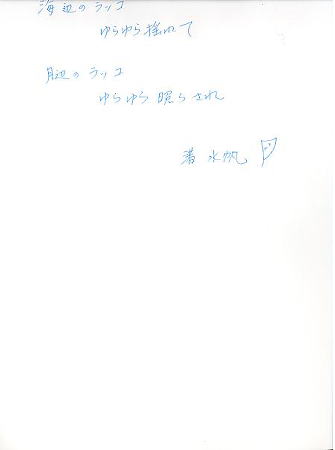 海辺のラッコ
ゆらゆら揺れて
月辺のラッコ
ゆらゆら照らされ
著 水帆